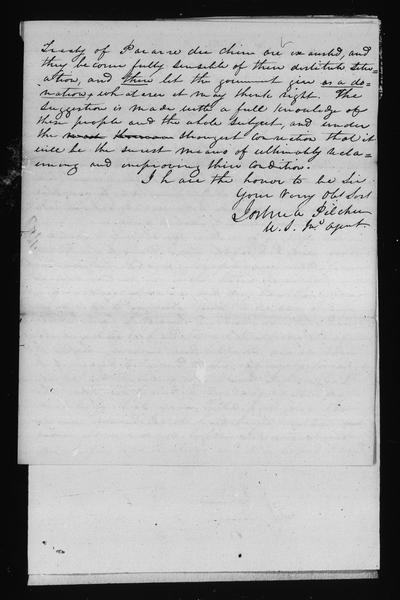 Treaty of Prairie du chien are exausted, and
they become fully sensible of their distitute situ-
ation, and then let the goverment give as a do-
nation, what ever it may think right. The
suggestion is made with a full knowledge of
these people and the whole subject, and under
the most thorough strongest conviction that it
will be the surest means of ultimately recla-
iming and improving their condition.
I have the honor to be Sir
Your Very Obt. Svt
Joshua Pilcher
U. S. Ind Agent.